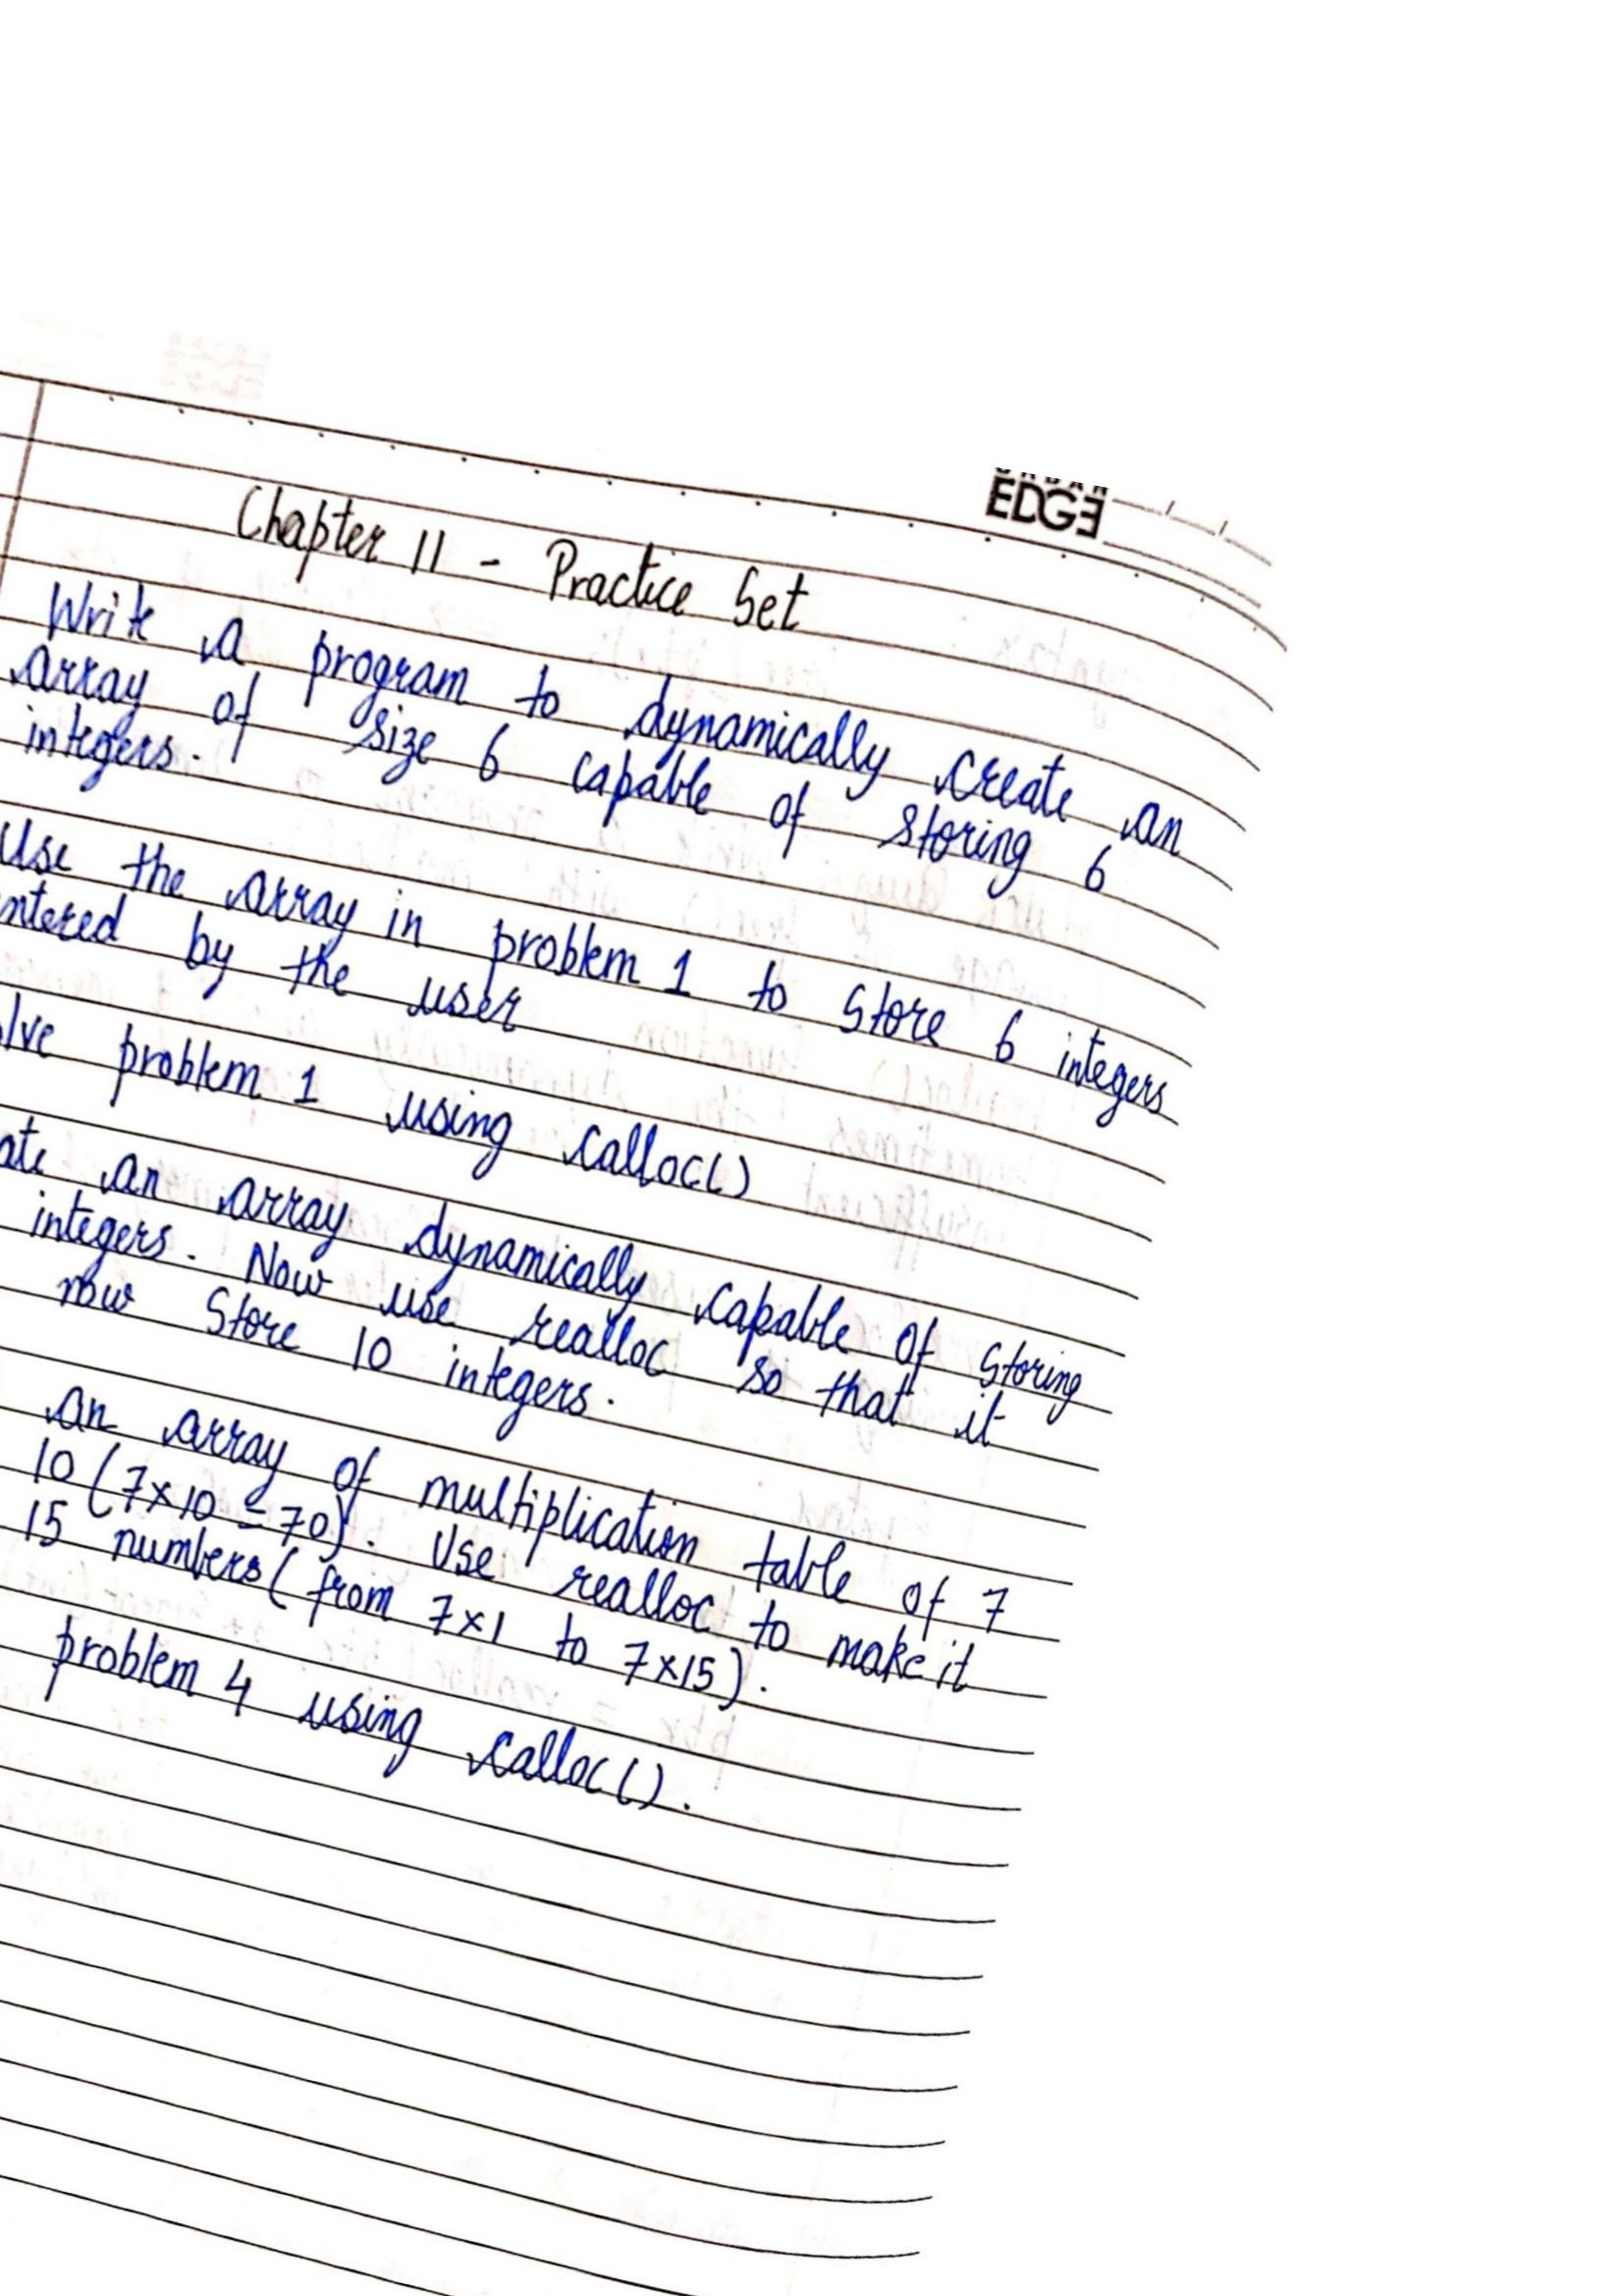 EDGE
Chapter 11 - Practice Set
Write a program to dynamically create an
array of size 6 capable of storing 6
integers.
Use the array in problem 1 to store 6 integers
ntered by the user
lve problem 1 using calloc()
ate an array dynamically capable of storing
integers. Now use realloc so that it
now store 10 integers.
an array of multiplication table of 7
10 (7×10 = 70). Use realloc to make it
15 numbers (from 7×1 to 7×15).
problem 4 using calloc().